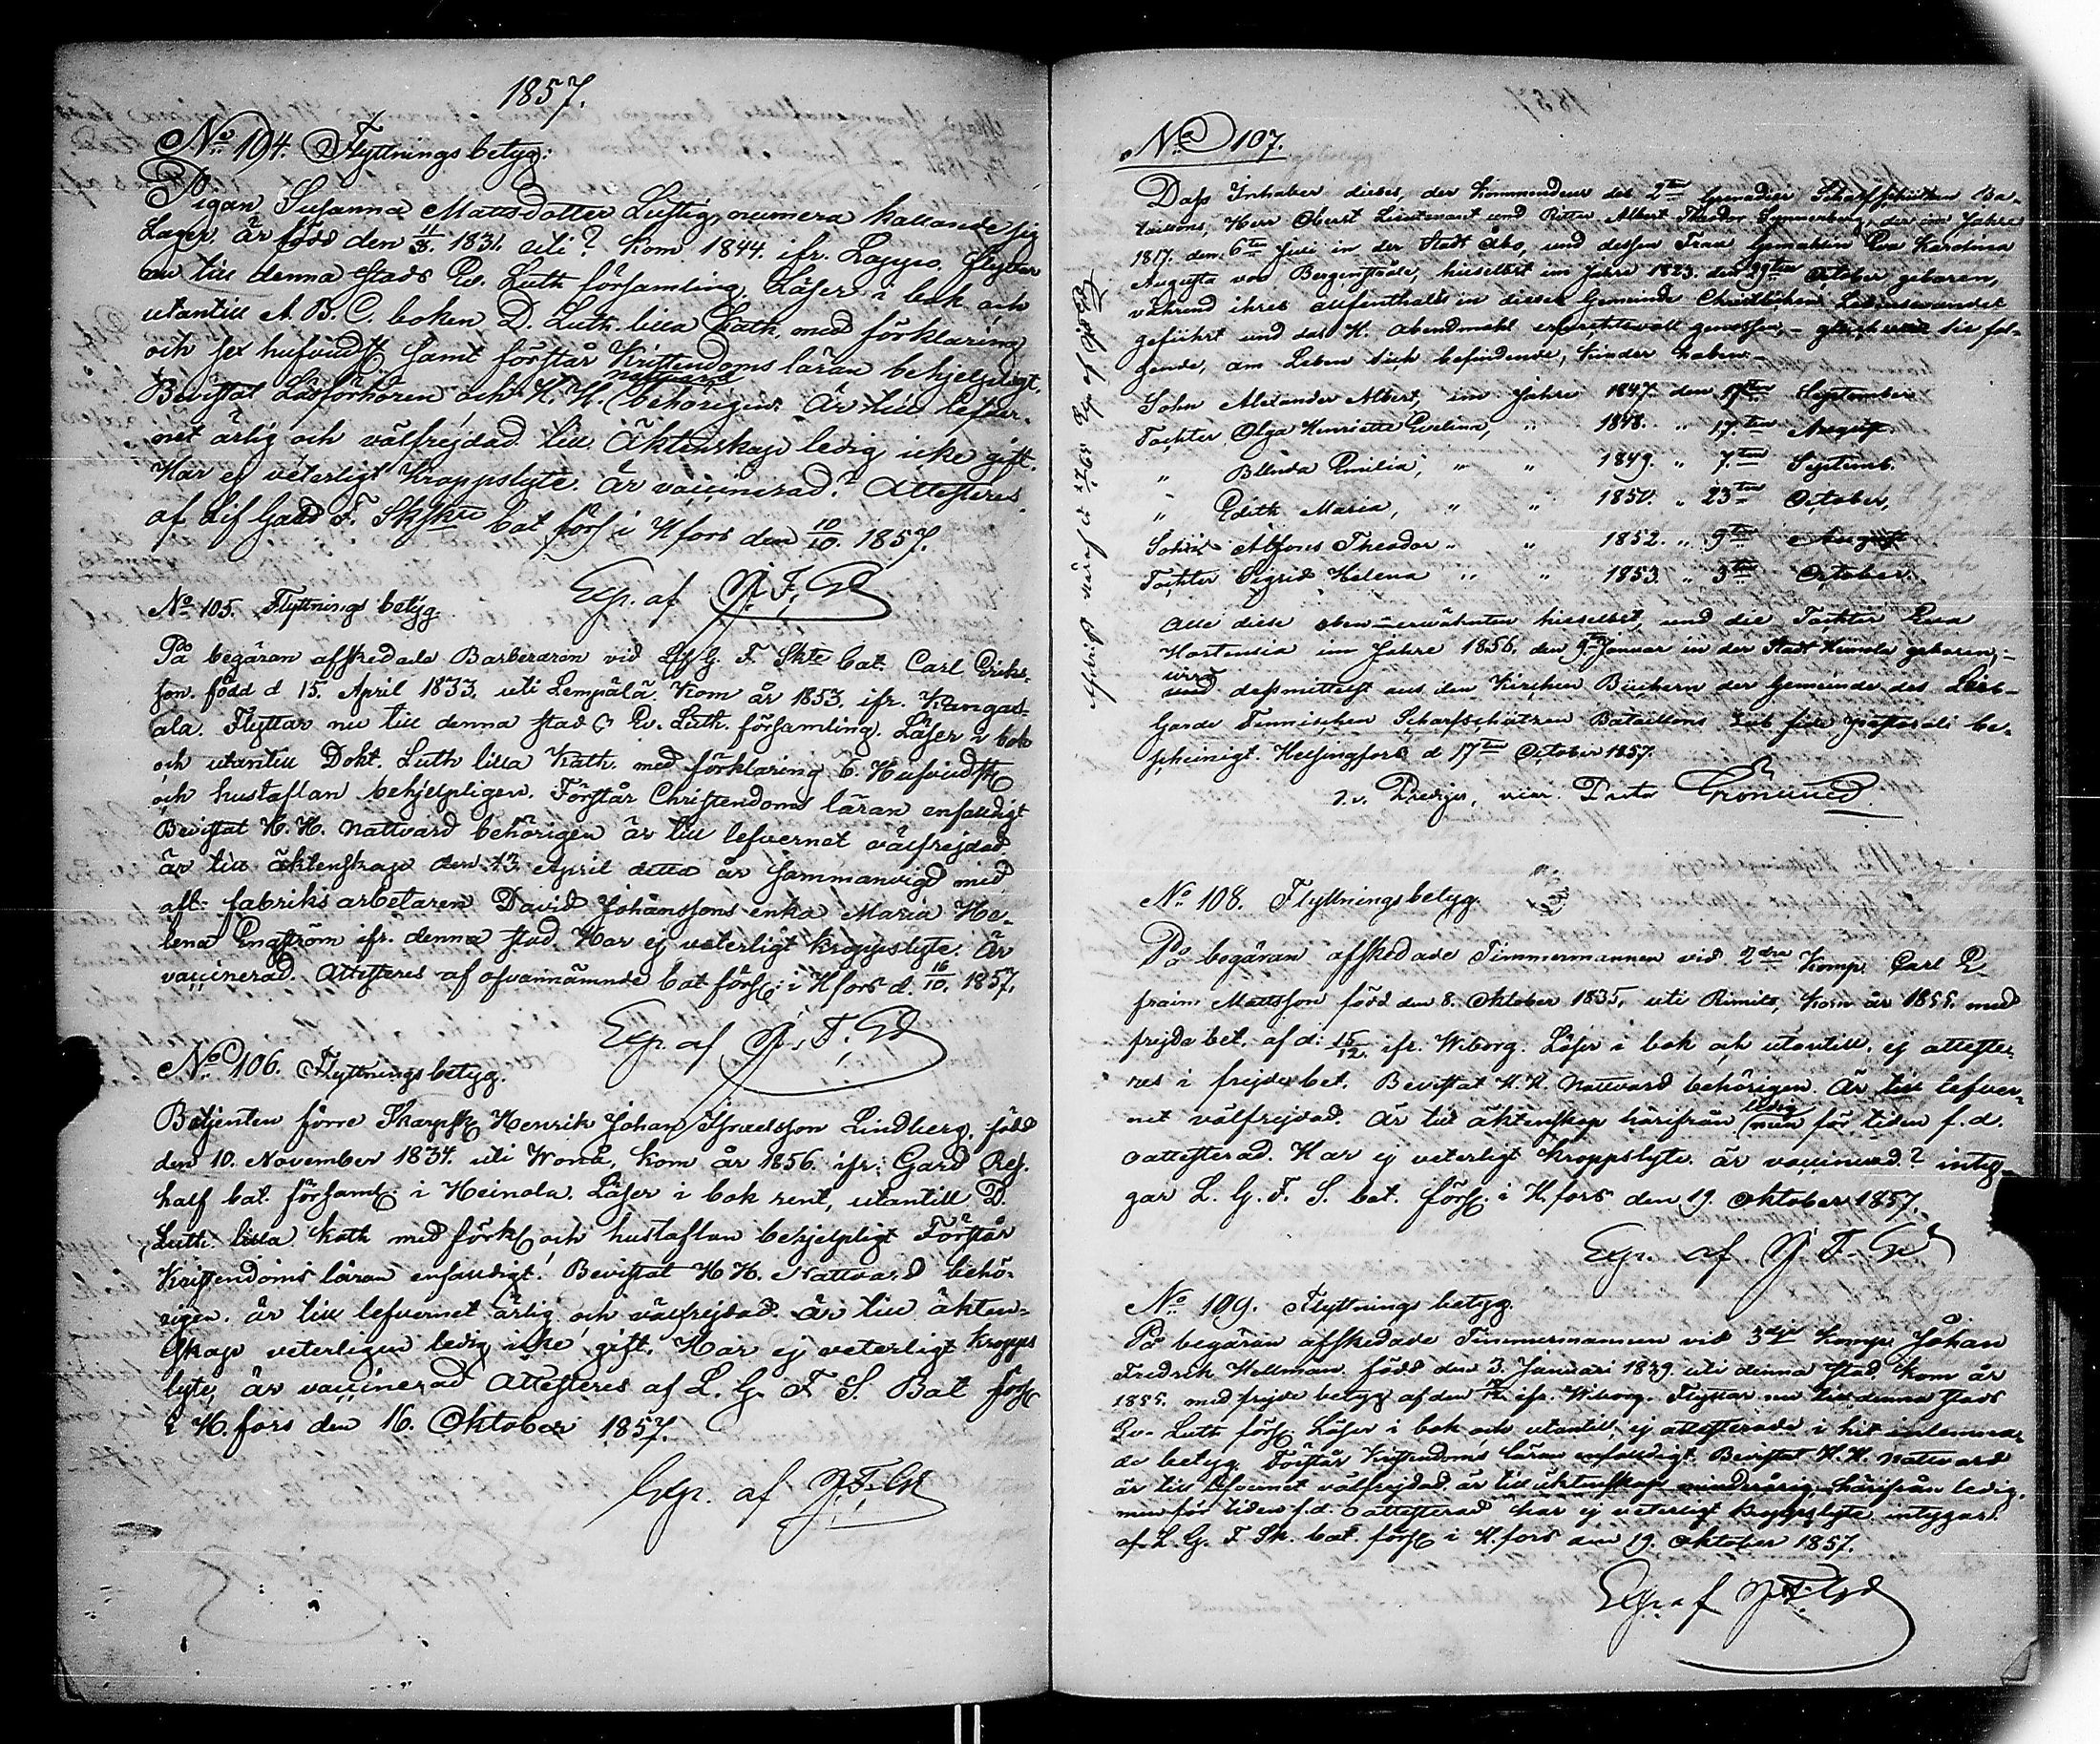 1857.
No 104. Flyttningsbetyg:
Pigan Susanna Mattsdotter Lustig, numera kallande sig
Lager. är född den 11/8. 1831. uti? kom 1844. ifr. Loppo. flyttar
nu till denna stads Ev. Luth församling, Läser i bok och
utantill A. B. C. boken D. Luth. lilla Cath. med förklaring
och sex hufvudst samt förstår Kristendoms läran behjelpligt.
Bevistat Läsförhören och H. H. nattvard behörigen. Är till lefver-
net ärlig och välfrejdad till Äktenskap ledig icke gift.
Har ej veterligt kroppslyte. är vaccinerad? Attesteres
af Lif Gard F. Skskte bat förs i Hfors den 10/10. 1857.
Exp. af J. F. Gd
No 105. Flyttnings betyg.
På begäran afskedade Barberaren vid L. G. F. Skte bat. Carl Eriks-
son. född d 15. April 1833. uti Lempälä. Kom år 1853. ifr. Kangas-
ala. Flyttar nu till denna stads Ev. Luth. församling. Läser i bok
och utantill Dokt. Luth lilla Kath. med förklaring 6. Hufvudst
och hustaflan behjelpligen. Förstår Christendoms läran enfaldigt
Bevistat H. H. Nattvard behörigen är till lefvernet välfrejdad.
är till äktenskap den 13 April detta år sammanvigd med
afl. fabriks arbetaren David Johanssons enka Maria He-
lena Engström ifr. denna stad. Har ej veterligt kroppslyte. Är
vaccinerad. Attesteres af ofvannämnde bat förs: i Hfors d. 16/10. 1857.
Exp. af J. F. Gd
No 106. Flyttnings betyg.
Betjenten förre Skarpsk Henrik Johan Israelsson Lindberg. född
den 10. November 1834. uti Wonå, kom år 1856. ifr: Gard Res.
half bat. församl: i Heinola. Läser i bok rent, utantill D.
Luth: lilla kath med förkl och hustaflan behjelpligt Förstår
Kristendoms läran enfaldigt. Bevistat H H. Nattvard behö-
rigen. är till lefvernet ärlig och välfrejdad är till äkten-
skap veterligen ledig icke gift. Har ej veterligt kropps
lyte, är vaccinerad Attesteres af L. G. F. S. Bat förs
i H. fors den 16. Oktober 1857.
Exp. af J. F. Gd
No 107.
Dass Inhaber dieses, der Kommendeur des 2ten Grenadier Scharfschützen Ba-
taillons, Herr Oberst Lieutenant und Ritter Albert Theodor der im Jahre
1817. den 6ten Juli in der Stadt Åbo, und dessen Frau Gemahlin Eva Karolina
Augusta von Bergenstråle, hieselbst im Jahre 1823. den 29ten October geboren,
während ihres aufenthalts in dieser Gemeinde Christlichen Lebenswandel
geführt und das H. Abendmahl genossen, – gleichwie sie fol-
gende, am Leben sich befindende, Kinder haben:
Sohn Alexander Albert, im Jahre 1847. den 17ten September
Tochter, Olga Henriette Evelina, " 1848. " 17.ten August.
" Blenda Emilia, " " 1849. " 7.ten Septemb.
" Edith Maria, " " 1850. " 23ten October,
Sohn Alfons Theodor " " 1852. " 9ten August
Tochter Sigrid Helena " " 1853. " 3ten October.
Alle diese oben erwähnten hieselbst, und die Tochter Eva
Hortensia im Jahre 1856. den 9ten Januar in der Stadt Heinola geboren, –
wird dessmittelst aus den Kirchen Büchern der Gemeinde des Leib-
Garde Finnischen Scharfschützen Bataillons sub fide pastorali be-
scheinigt. Helsingfors d 17ten October 1857.
s. v. Prediger, vice Pastor Grönlund.
No 108. Flyttningsbetyg.
På begäran afskedade Timmermannen vid 2dra Komp. Carl E
fraim Mattsson född den 8. Oktober 1835. uti Rimito, kom år 1855. med
frejde bet. af d: 15/12. ifr. Wiborg. Läser i bok och utantill, ej atteste-
res i frejdebet. Bevistat H. H. Nattvard behörigen. Är till lefver-
net välfrejdad. Är till äktenskap härifrån ledig men för tiden f. d.
oattesterad. Har ej veterligt kroppslyte. är vaccinerad? inty-
gar L. G. F. S. bat. förs. i H. fors den 19. Oktober 1857.
Exp. af J. F. Gd
No 109. Flyttnings betyg.
På begäran afskedade Timmermannen vid 3dje Komp. Johan
Fredrik Hellman. född den 3. Januari 1839. uti denna stad, kom år
1855. med frejde betyg af den ifr. Wiborg. Flyttar nu till denna stads
Ev. Luth förs Läser i bok och utantill, ej attesterade i hit inlemna-
de betyg. Förstår Kristendoms läran enfaldigt. Bevistat H. H. nattvard
är till lefvernet välfrejdad. är till äktenskap minderårig härifrån ledig.
men för tiden f.d. oattesterad har ej veterligt kroppslyte intygar.
af L. G. F. Sk. bat. förs i H. fors den 19. Oktober 1857.
Exp. af J. F. Gd